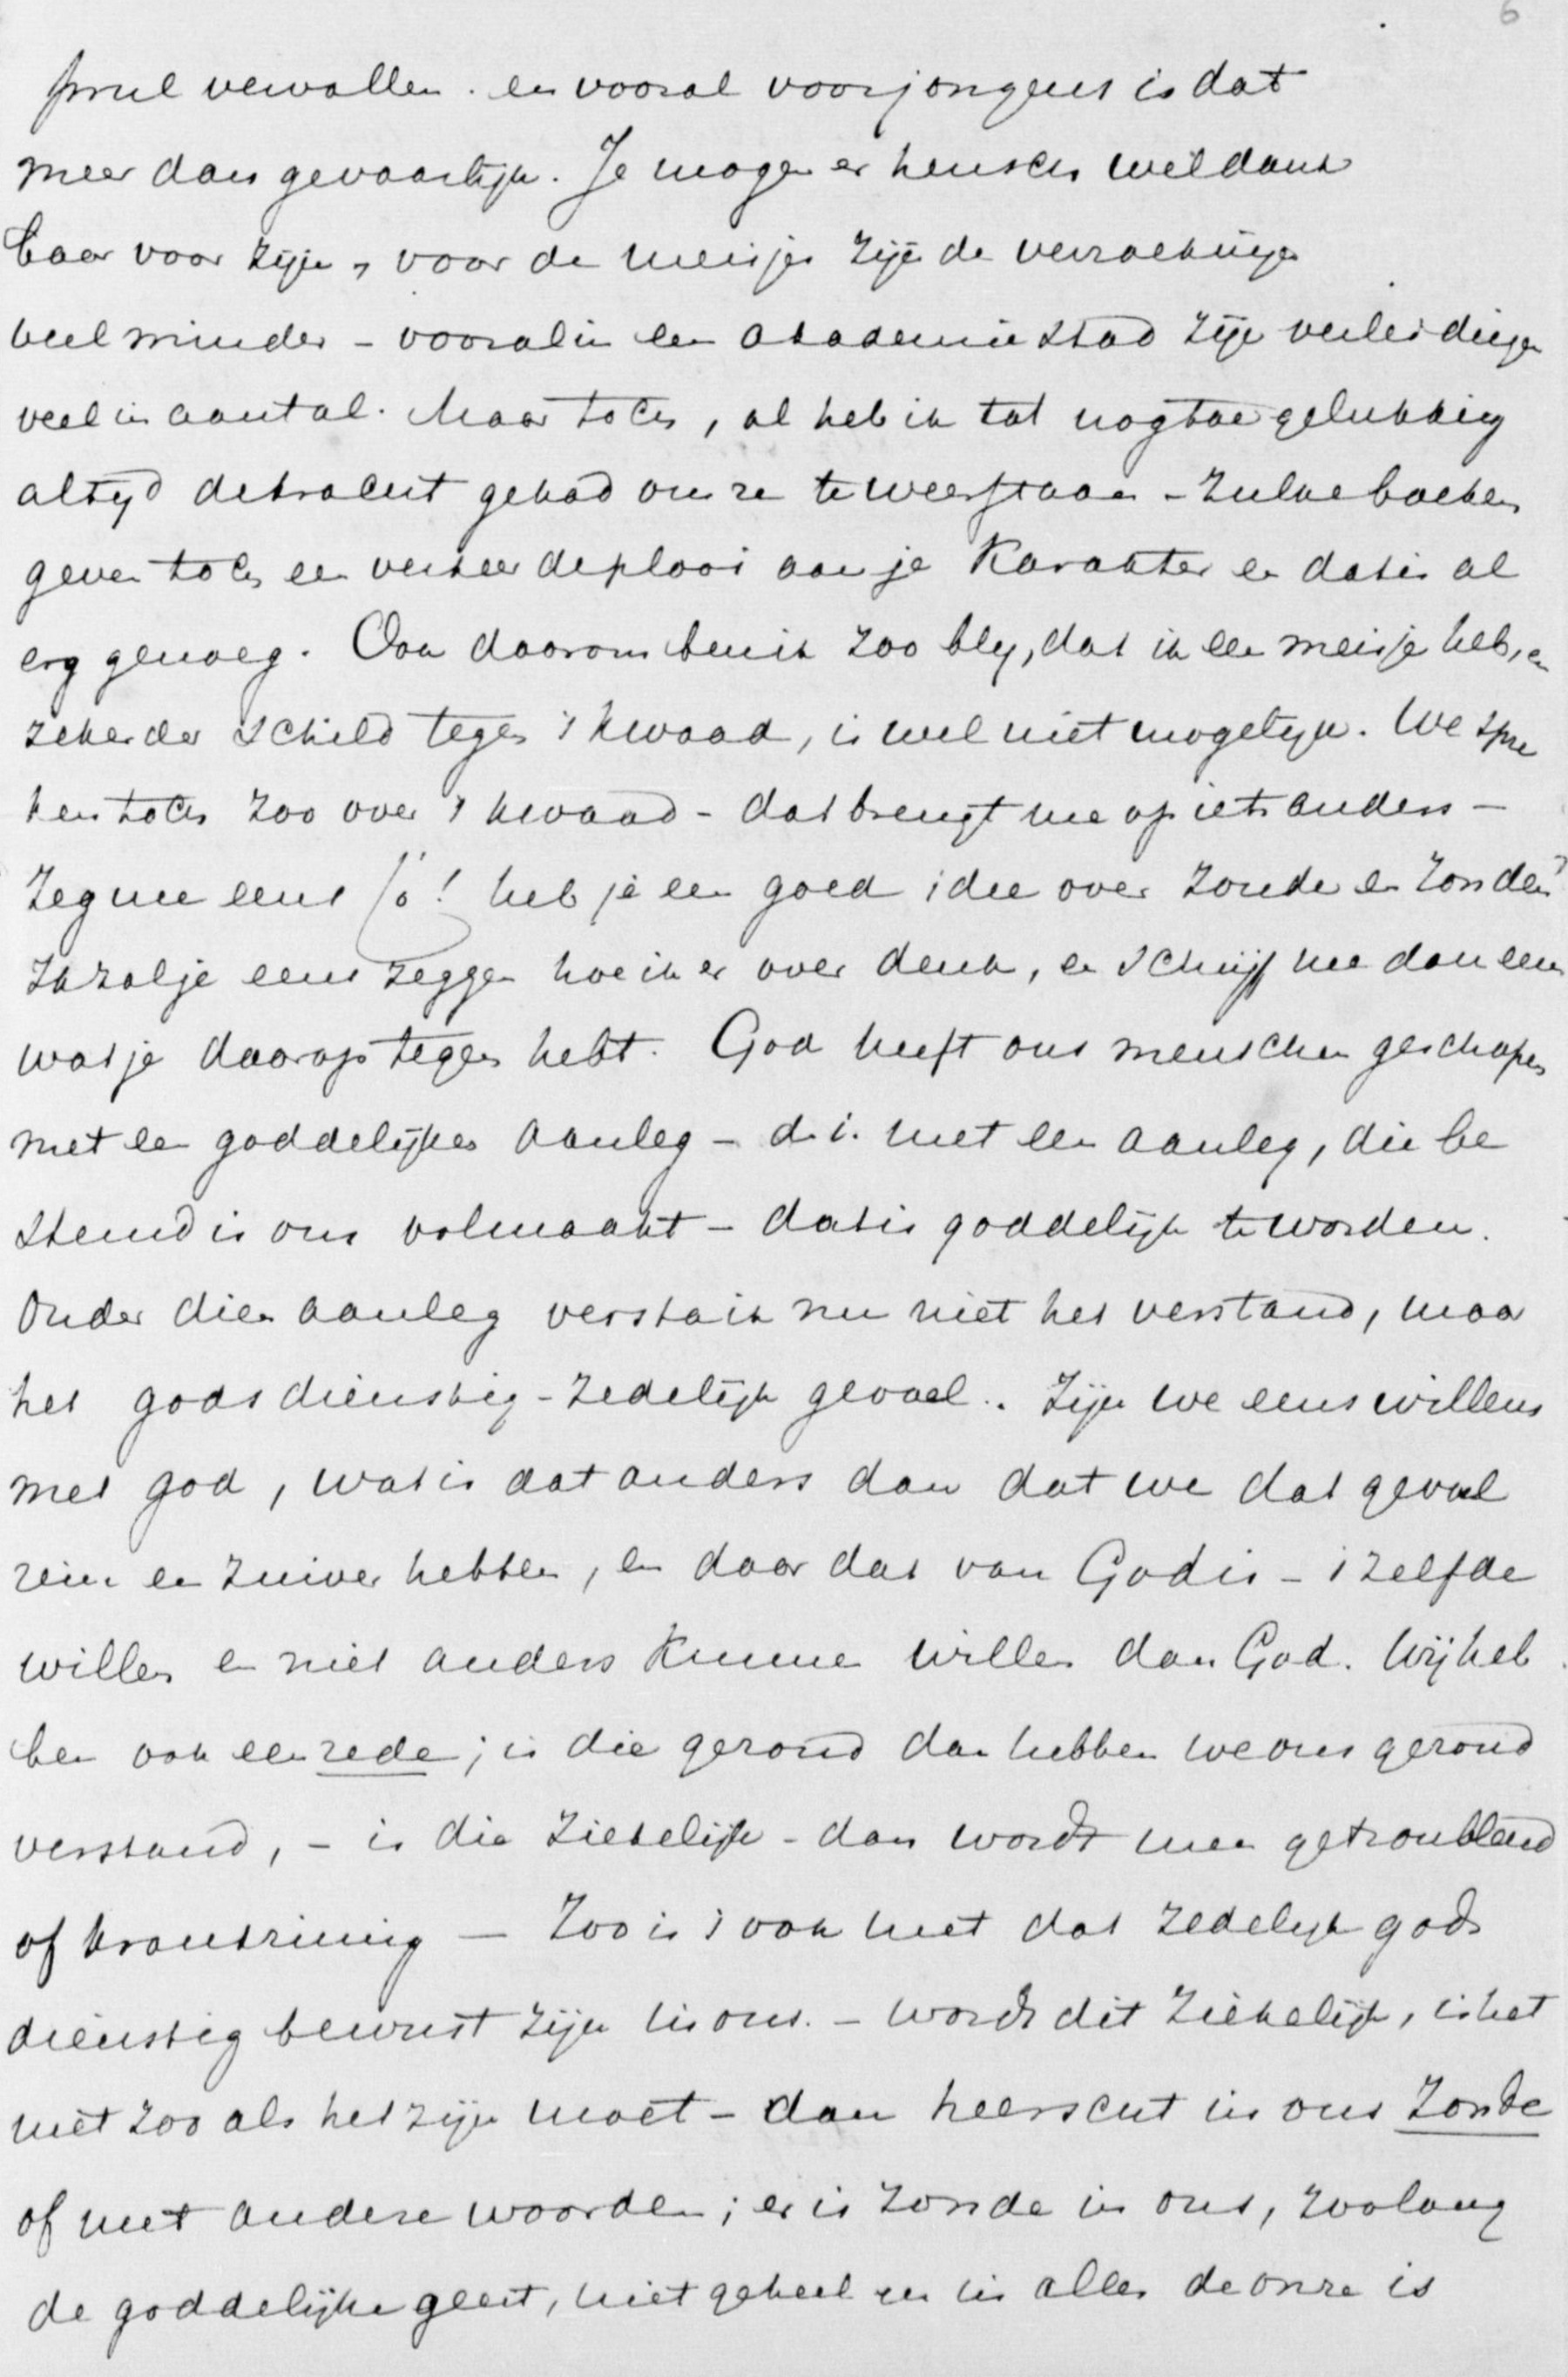 6
prul vervallen. en vooral voor jongens is dat
meer dan gevaarlijk. Je mogen er heusch wel dank
baar voor zijn, voor de meisjes zijn de verzoekingen
veel minder - vooral in een academiestad zijn verleidingen
veel in aantal. Maar toch, al heb ik tot nog toe gelukkig
altijd de kracht gehad om ze te weerstaan - zulke boeken
geven toch een verkeerde plooi aan je karakter en dat is al
erg genoeg. Ook daarom ben ik zoo blij, dat ik een meisje heb, en
zekerder schild tegen 't kwaad, is wel niet mogelijk. We spre
ken toch zoo over 't kwaad - dat brengt me op iets anders -
Zeg me eens Jo! heb je een goed idee over zonde en zonden?
Ik zal je eens zeggen hoe ik er over denk, en schrijf me dan eens
wat je daarop tegen hebt. God heeft ons menschen geschapen
met een goddelijken aanleg - d.i. met een aanleg, die be
stemd is om volmaakt - dat is goddelijk te worden.
Onder dien aanleg versta ik nu niet het verstand, maar
het godsdienstig-zedelijk gevoel. Zijn we eens willens
met god, wat is dat anders dan dat we dat gevoel
rein en zuiver hebben, en daar dat van God is - 't zelfde
willen en niet anders kunnen willen dan God. Wij heb
ben ook een rede; is die gezond dan hebben we ons gezond
verstand, - is die ziekelijk - dan wordt men getroubleerd
of krankzinnig - Zoo is 't ook met dat zedelijk gods
dienstig bewust zijn in ons. - wordt dit ziekelijk, is het
niet zoo als het zijn moet - dan heerscht in ons zonde
of met andere woorden; er is zonde in ons, zoolang
de goddelijke geest, niet geheel en in alles de onze is